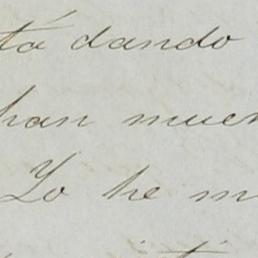 tá dando
han muer
Yo he m